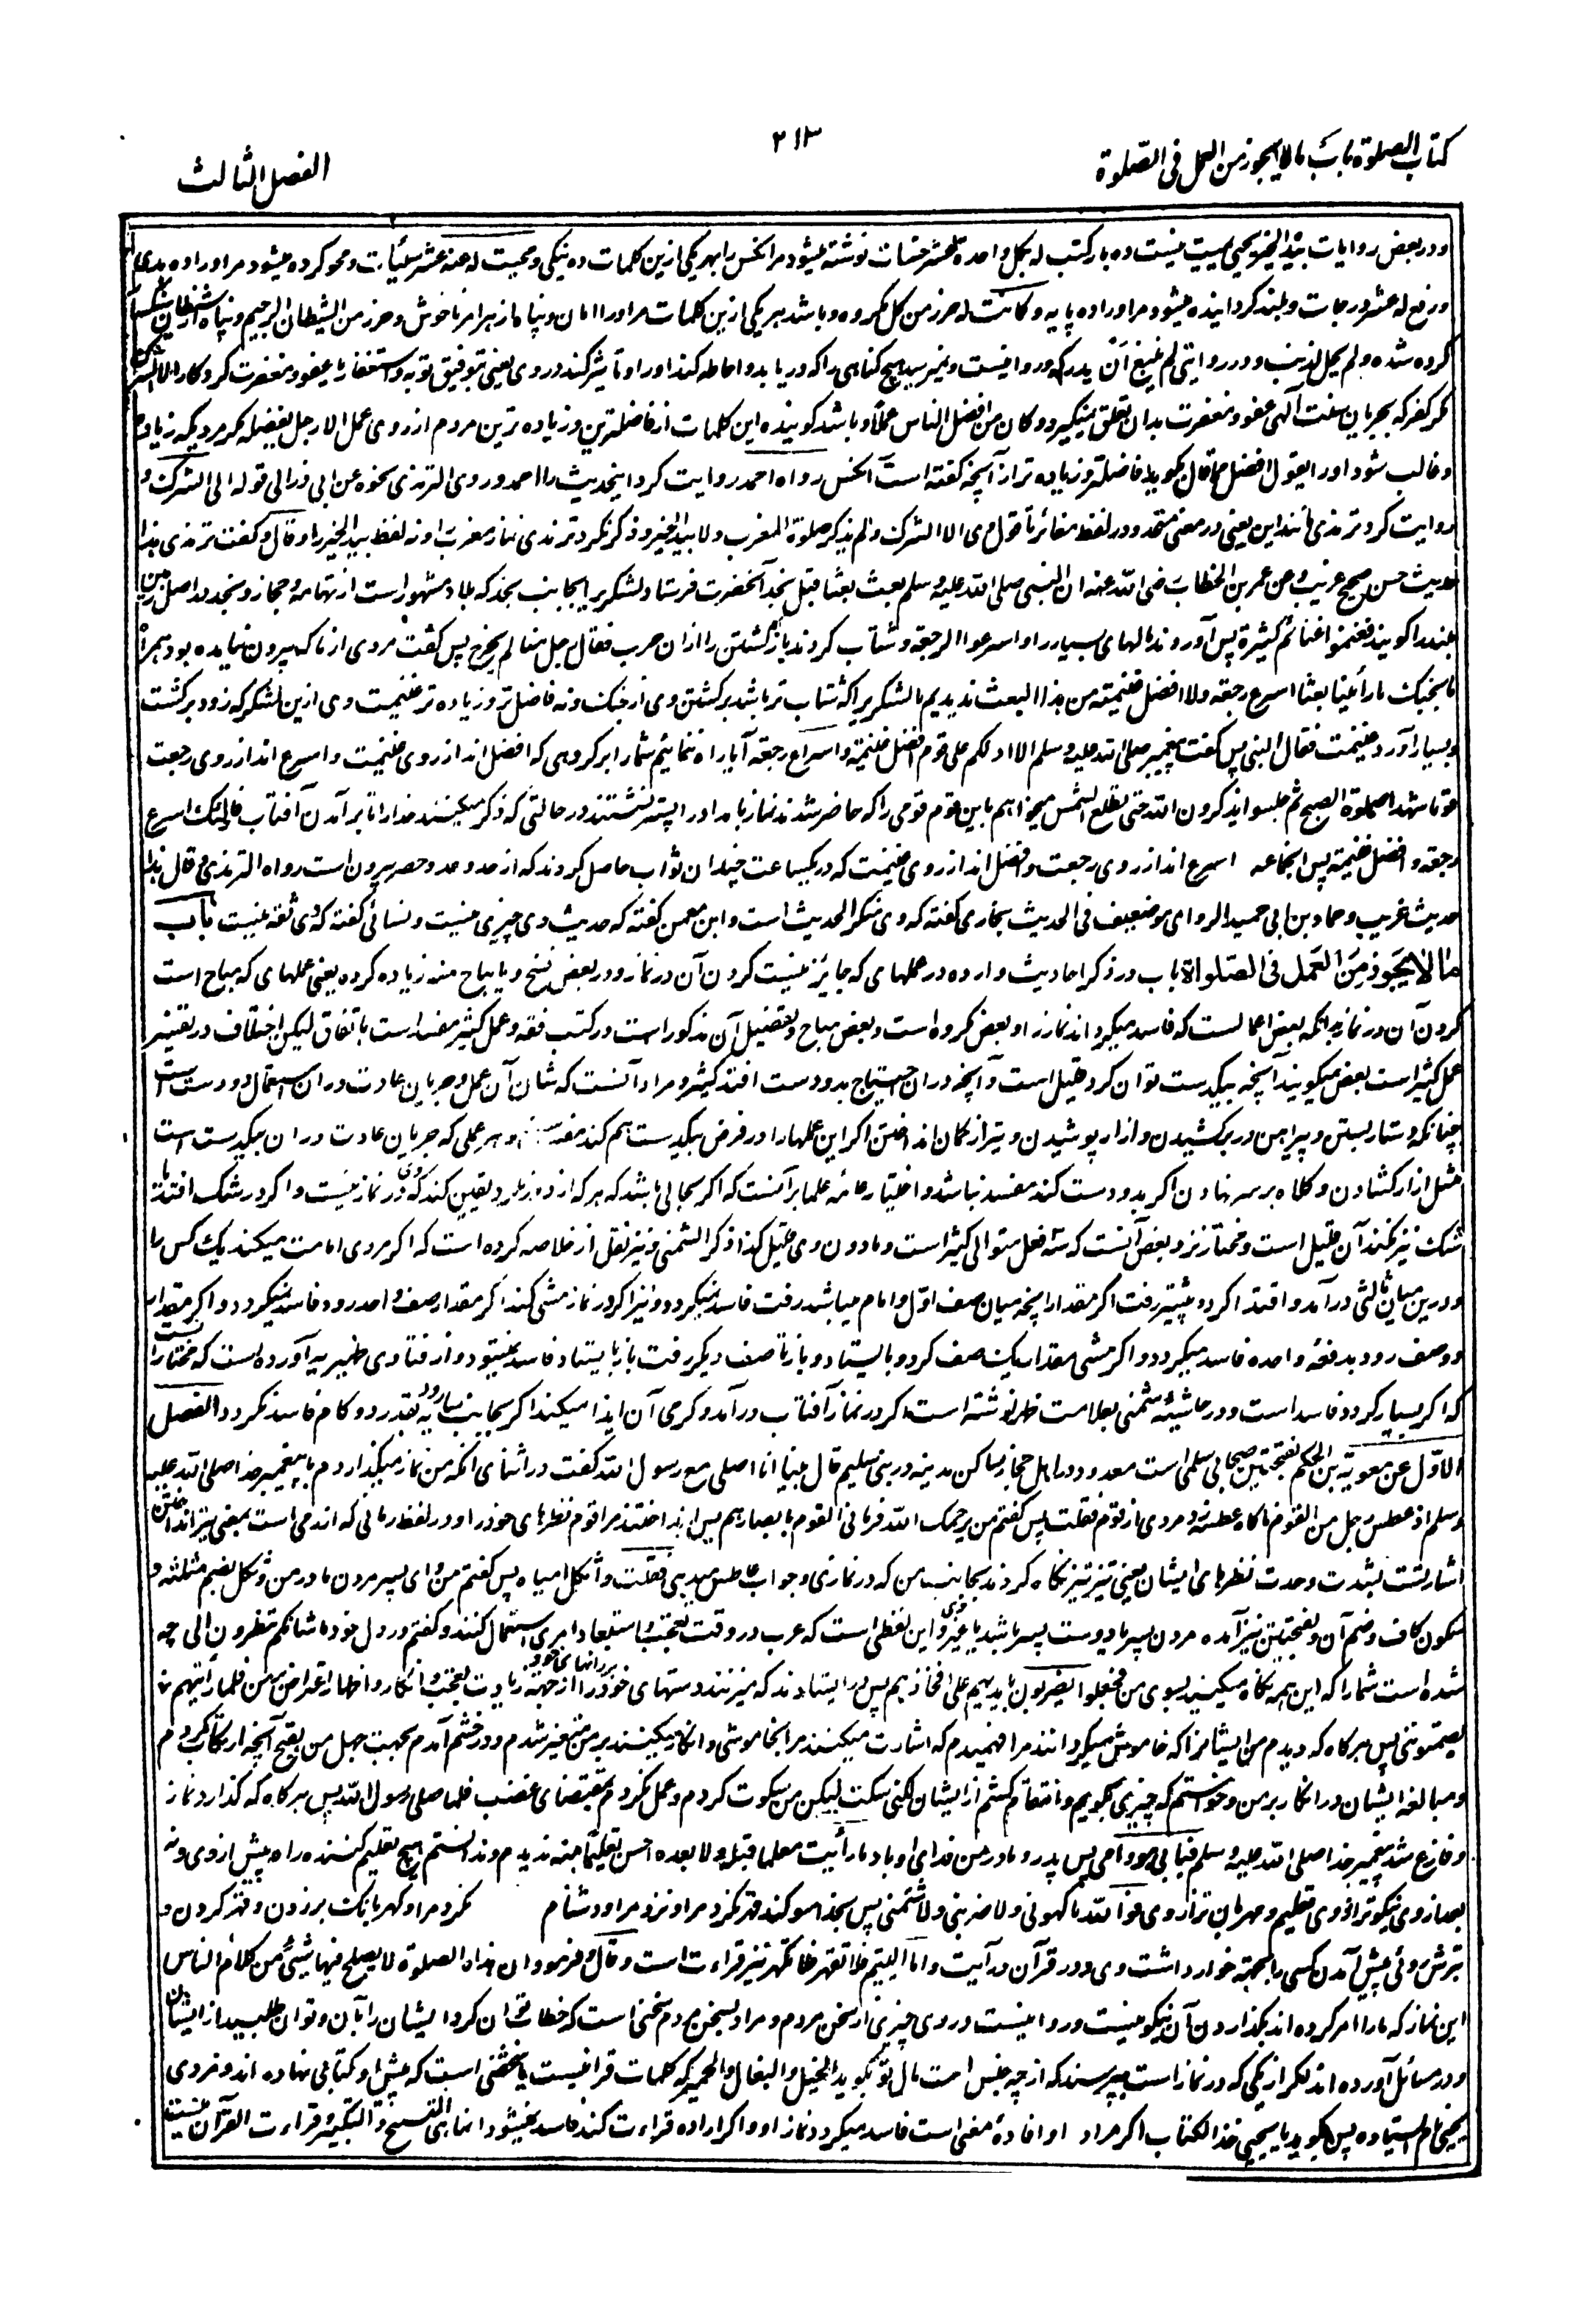 کتاب الصلوة باب ما لا یجوز من العمل فی الصّلوة
۴۱۳
الفصل الثالث
و در بعض روایات بیده الخیر یحیی و یمیت نیست ده بار کتب له بکل واحدة عشر حسنات نوشته میشود مر آنکس را بهر یکی ازین کلمات ده نیکی و محیت له عنه عشر سیّئات و محو کرده میشود مر او را ده بدی
و رفع له عشر درجات و بلند گردانیده میشود مر او را ده پایه و کانت له حرز من کل مکروه و باشد هر یکی ازین کلمات مر او را امان و پناه از هر امر ناخوش و حرز من الشیطان الرجیم و پناه از شیطان
کرده شده و لم یحل لذنب و در روایتی لم ینبغ ان یدرکه و روا نیست و نمیرسد هیچ گناهی را که دریابد و احاطه کند او را و تأثیر کند در وی یعنی بتوفیق توبه و استغفار یا بعفو و مغفرت کردگار الا الشرک
مگر کفر که بجریان سنت الهی عفو و مغفرت بدان تعلق نمیگیرد و کان من افضل الناس عملا و باشد گوینده این کلمات از فاضلترین و زیاده ترین مردم از روی عمل الا رجل یفضله مگر مردیکه زیاده
و غالب شود او را یقول افضل مما قال بگوید فاضلتر و زیاده تر از آنچه گفته است آنکس رواه احمد روایت کرد اینحدیث را احمد و روی الترمذی نحوه عن ابی ذر الی قوله الی الشرک و
روایت کرد ترمذی مانند این یعنی در معنی متحد و در لفظ مغایر تا قول وی الا الشرک و لم یذکر صلوة المغرب و لا بیده الخیر و ذکر نکرد ترمذی نماز مغرب را و نه لفظ بیده الخیر را و قال و گفت ترمذی هذا
حدیث حسن صحیح غریب و عن عمر بن الخطاب رضی الله عنه ان النبی صلی الله علیه وسلم بعث بعثا قبل نجد آنحضرت فرستاد لشکری را بجانب نجد که بلاد مشهور است از تهامه و حجاز و نجد در اصل زمین
بلند را گویند فغنموا غنائم کثیرة پس آوردند مالهای بسیار را و اسرعوا الرجعة و شتاب کردند بازگشتن را از آن حرب فقال رجل منا لم یخرج پس گفت مردی از ما که بیرون نیامده بود همراه
ما بجنگ ما رأینا بعثا اسرع رجعة و لا افضل غنیمة من هذا البعث ندیدیم ما لشکری را که شتاب تر باشد برگشتن وی از جنگ و نه فاضل تر و زیاده تر غنیمت وی ازین لشکر که زود برگشت
و بسیار آورد غنیمت فقال النبی پس گفت پیغمبر صلی الله علیه وسلم الا ادلکم علی قوم افضل غنیمة و اسرع رجعة آیا راه ننمایم شما را بر گروهی که افضل اند از روی غنیمت و اسرع اند از روی رجعت
قوما شهدوا صلوة الصبح ثم جلسوا یذکرون الله حتی تطلع الشمس میخواهم باین قوم قومی را که حاضر شدند نماز بامداد را پستر نشستند در حالتی که ذکر میکنند خدا را تا برآمدن آفتاب فاولئک اسرع
رجعة و افضل غنیمة پس اینجماعه اسرع اند از روی رجعت و افضل اند از روی غنیمت که در یکساعت چندان ثواب حاصل کردند که از حد و عد و حصر بیرون است رواه الترمذی و قال هذا
حدیث غریب و حماد بن ابی حمید الراوی هو ضعیف فی الحدیث بخاری گفته که وی منکر الحدیث است و ابن معین گفته که حدیث وی چیزی نیست و نسائی گفته که وی ثقه نیست باب
ما لا یجوز من العمل فی الصلواة باب در ذکر احادیث وارده در عملهای که جایز نیست کردن آن در نماز و در بعض نسخ و یا یباح منه زیاده کرده یعنی عملهای که مباح است
کردن آن در نماز بدانکه بعض اعمالست که فاسد میگرداند نماز را و بعض مکروه است و بعض مباح و تفصیل آن مذکور است در کتب فقه و عمل کثیر مفسد است باتفاق لیکن اختلاف در تفسیر
عمل کثیر است بعض میگویند آنچه بیکدست توان کرد قلیل است و آنچه در ان احتیاج بدو دست افتد کثیر و مراد آنست که شان آن عمل و جریان عادت در ان استعمال دو دست است
چنانکه دستار بستن و پیراهن در بر کشیدن و ازار پوشیدن و تیر از کمان انداختن اگر این عملها را در فرض بیکدست هم کند مفسد و هر عملی که جریان عادت در ان بیکدست است
مثل ازار کشادن و کلاه بر سر نهادن اگر بدو دست کند مفسد نباشد و اختیار عامه علما بر آنست که اگر بحالی باشد که هر که از دور بیند یقین کند که وی در نماز نیست و اگر در شک افتد یا
شک نیز نکند آن قلیل است و مختار نزد بعض آنست که سه فعل متوالی کثیر است و مادون وی قلیل کذا ذکر الشمنی و نیز نقل از خلاصه کرده است که اگر مردی امامت میکند یک کس را
و درین میان ثالثی درآمد و اقتدا کرد و پیشتر رفت اگر مقدار آنچه میان صف اوّل و امام میباشد رفت فاسد نمیگردد و نیز اگر در نماز مشی کند اگر مقدار صف واحد رود فاسد نمیگردد و اگر مقدار
دو صف رود بدفعه واحده فاسد میگردد و اگر مشی مقدار یک صف کرد و بایستاد و باز تا صف دیگر رفت باز بایستاد فاسد نمیشود و از فتاوی ظهیریه آورده است که مختار آنست
که اگر بسیار گردد فاسد است و در حاشیه شمنی بعلامت خلاصه نوشته است اگر در نماز آفتاب درآمد و گرمی آن ایذا میکند اگر بجانب سایه رود بقدر دو گام فاسد نگردد الفصل
الاوّل عن معویة بن الحکم بفتحتین صحابی سلمی است معدود در اهل حجاز ساکن مدینه در بنی سلیم قال بینا انا اصلی مع رسول الله گفت در اثنای آنکه من نماز میگذاردم با پیغمبر خدا صلی الله علیه
وسلم اذ عطس رجل من القوم ناگاه عطسه زد مردی از قوم فقلت پس گفتم من یرحمک الله فرمانی القوم بابصارهم پس انداختند مر اقوم نظرهای خود را و در لفظ رمانی که از رمی است بمعنی تیر انداختن
اشارتست بشدت و حدت نظرهای ایشان یعنی تیز تیز نگاه کردند بجانب من که در نمازی و جواب عاطس میدهی فقلت واثکل امیاه پس گفتم من وای پسر مردن مادر من و ثکل بضم مثلثه و
سکون کاف و ضم آن و بفتحتین نیز آمده مردن پسر یا دوست پسر باشد یا غیر وی و این لفظی است که عرب در وقت تعجب و استبعاد امری استعمال کنند و گفتم در دل خود ما شانکم تنظرون الی چه
شده است شما را که این همه نگاه میکنید بسوی من فجعلوا یضربون بایدیهم علی افخاذهم پس در ایستادند که میزنند دستهای خود را بر رانهای خود از جهة زیادت تعجب و انکار و اظهار اعتراض بر من فلما رأیتهم
یصمتوننی پس هرگاه که دیدم من ایشانرا که خاموش میگردانند مرا فهمیدم که اشارت میکنند مرا بخاموشی و انکار میکنند بر من متغیر شدم و در خشم آمدم بجهت جهل من بقبح آنچه ارتکاب کردم
و مبالغه ایشان در انکار بر من و خواستم که چیزی بگویم و انتقام کشم از ایشان لکنی سکت لیکن من سکوت کردم و عمل نکردم بمقتضای غضب فلما صلی رسول الله پس هرگاه که گذارد نماز
و فارغ شد پیغمبر خدا صلی الله علیه وسلم فبابی هو وامی پس پدر و مادر من فدای او باد ما رأیت معلما قبله و لا بعده احسن تعلیما منه ندیدم و ندانستم هیچ تعلیم کننده را نه پیش از وی و نه
بعد از وی نیکوتر از وی تعلیم و مهربان تر از وی فوالله ما کهرنی و لا ضربنی و لا شتمنی پس بخدا سوگند قهر نکرد مرا و نزد مرا و دشنام نکرد مرا و کهر بانگ بر زدن و قهر کردن و
ترش روئی پیش آمدن کسی را بجهة خوار داشت وی و در قرآن در آیت و اما الیتیم فلا تقهر فلا تکهر نیز قراءت است و قال و فرمود ان هذه الصلوة لا یصلح فیها شیئ من کلام الناس
این نماز که ما را امر کرده اند بگذاردن آن نیکو نیست و روا نیست در وی چیزی از سخن مردم و مراد بسخن مردم سخنی است که خطاب توان کرد ایشان را بآن و توان طلبید از ایشان
و در مسائل آورده اند که اگر از یکی که در نماز است بپرسند که از چه جنس است مال تو بگوید الخیل و البغال و الحمیر که کلمات قرآنیست یا شخصی است که پیش او کتابی نهاده اند و مردی
یحیی نام ایستاده پس بگوید یا یحیی خذ الکتاب اگر مراد او افاده معنی است فاسد میگردد نماز او و اگر اراده قراءت کند فاسد نمیشود انما هی التسبیح و التکبیر و قراءت القرآن نیست